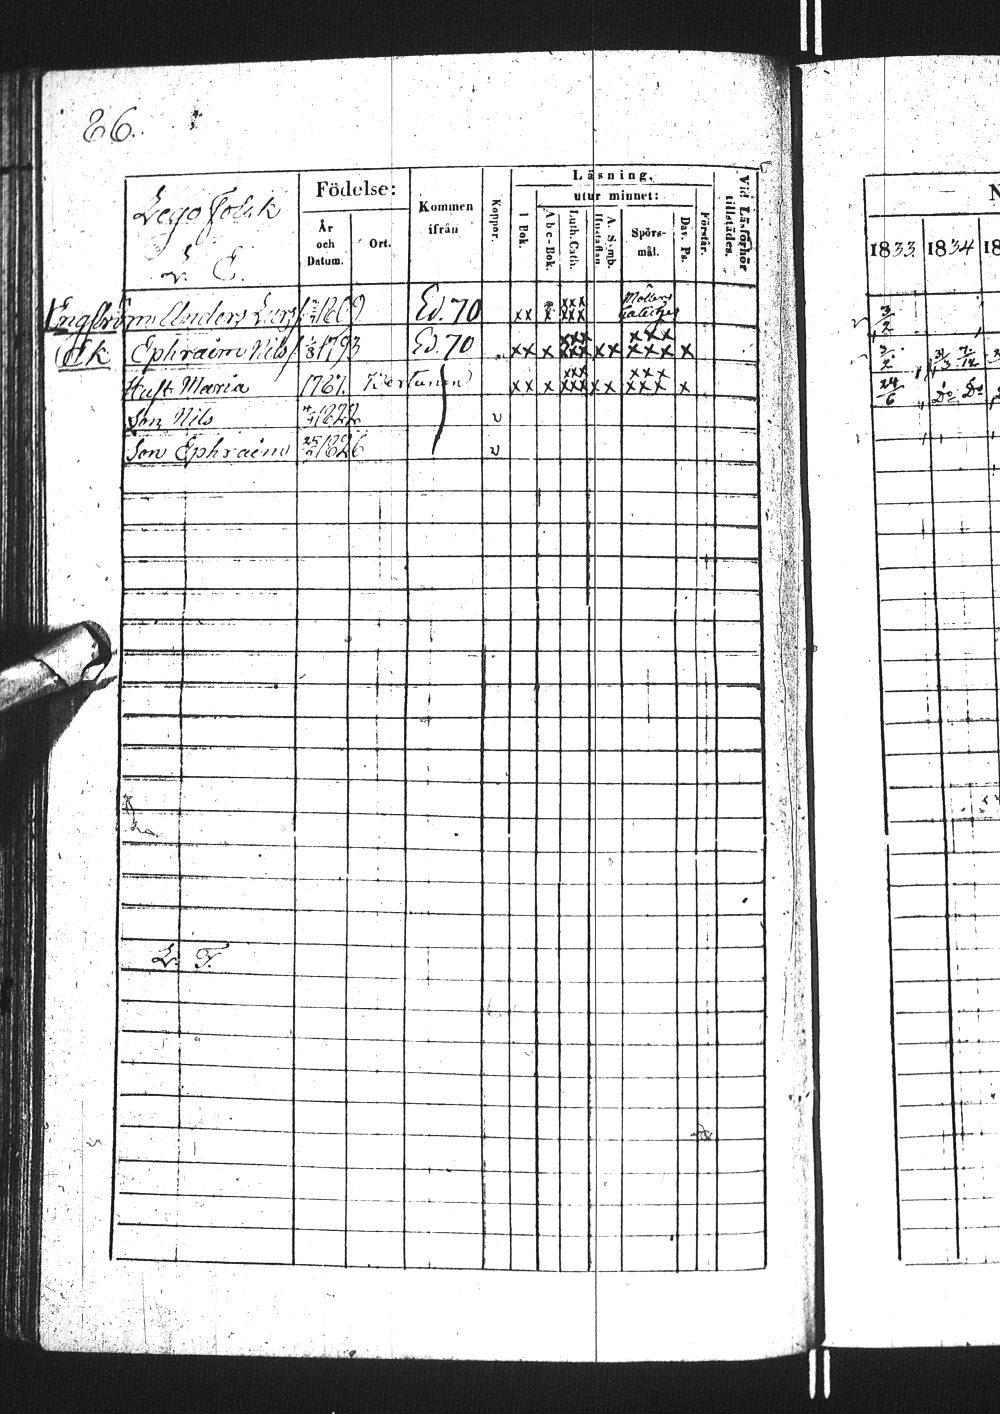 86.
Läsning.
Födelse: utur minnet:
Lego Folck
Kommen ifrån
Koppor.
I Bok.
Abc-Bok.
Luth. Cath.
A. Symb.
Hustaflan
Spörsmål.
Dav. Ps.
Förstår.
Vid Läsförhör tillstädes.
År och Datum.
Ort.
1833. 1834 18
L. E.
Engström Anders Lars 1809 Ed. 70 xx x xxx xxx Möllers Cateches 3/2
Ek Ephraim Nils 1/3 1793 Ed. 70 xx x xxx xxx xx xxx xxxx x 3/2
Hust Maria 1761. xx x xxx xxx xx xxx xxx x 24/6 Do Do
Son Nils 1822 v
Son Ephraim 25/2 1826 v
L. F.